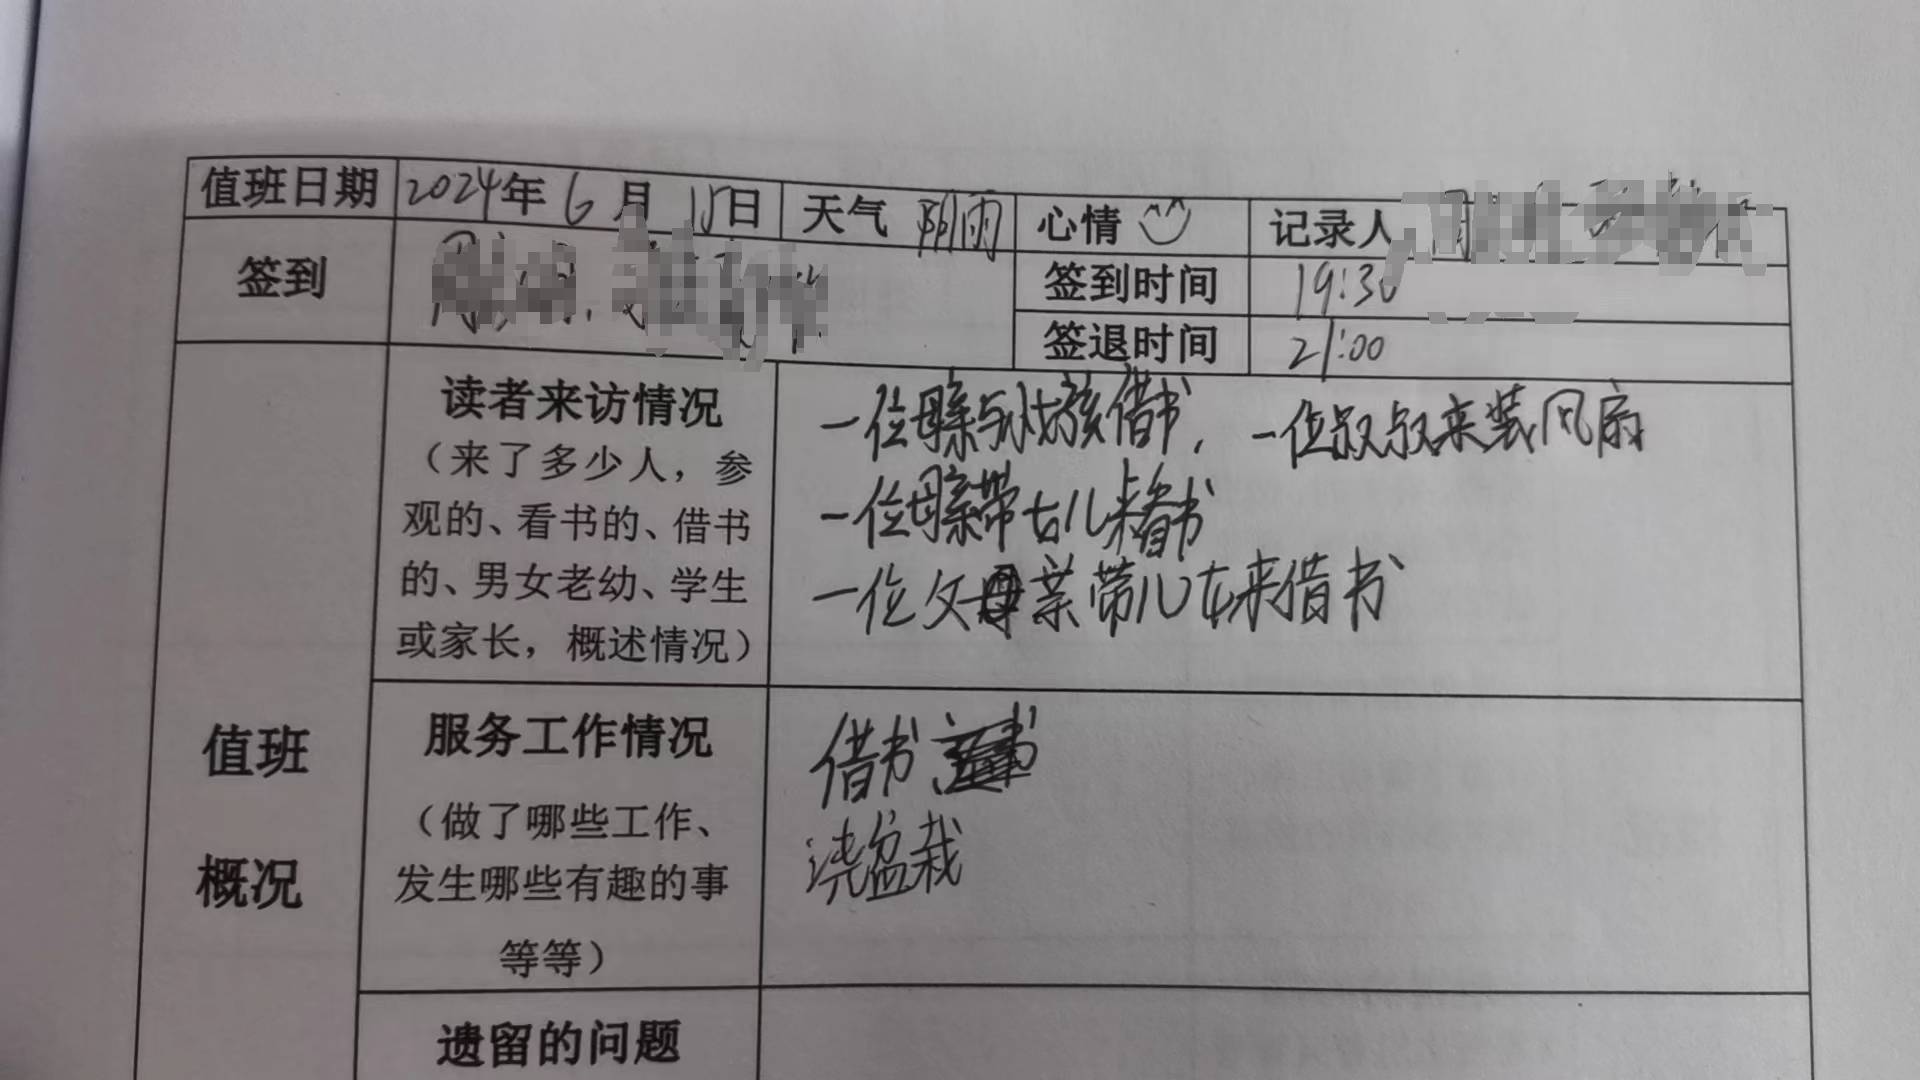 值班日期 2024年 6月 15日 天气 阴雨 心情 记录人
签到 签到时间 19:30
签退时间 21:00
读者来访情况
(来了多少人，参
观的、看书的、借书
的、男女老幼、学生
或家长，概述情况)
一位母亲与小女孩借书，一位叔叔来装风扇
一位母亲带女儿来看书
一位父亲带儿子来借书
值班
概况
服务工作情况
(做了哪些工作、
发生哪些有趣的事
等等)
借书、
浇盆栽
遗留的问题